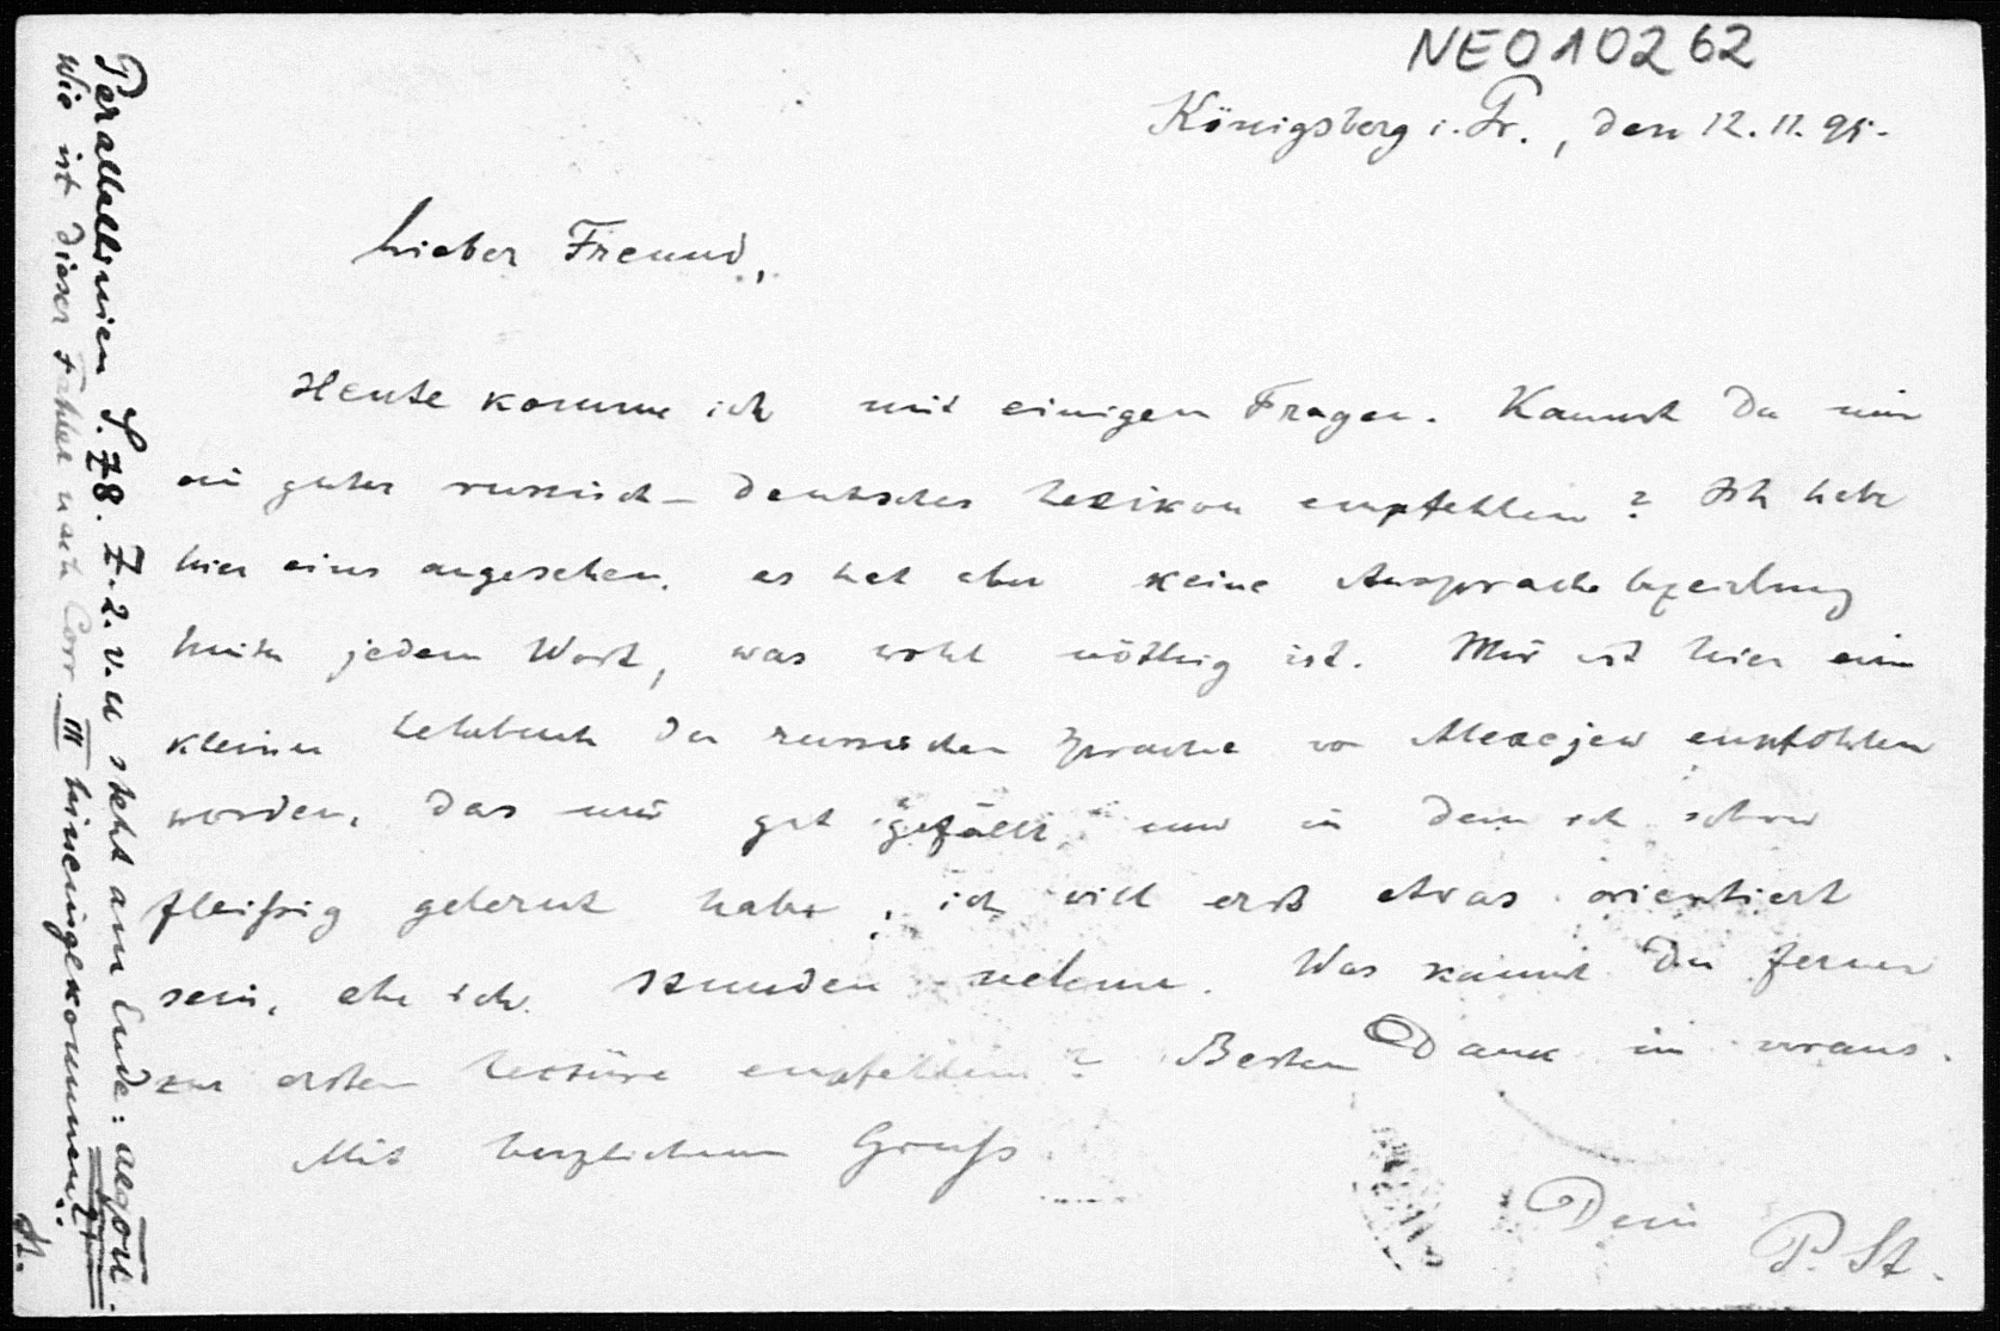 NE010262
Königsberg i. Pr., den 12. 11. 95.
Lieber Freund,
Heute komme ich mit einigen Fragen. Kannst Du mir
ein gutes russisch-deutsches Lexikon empfehlen? Ich habe
hier eins angesehen, es hat aber keine Aussprachebezeichnung
hinter jedem Wort, was wohl nöthig ist. Mir ist hier ein
kleines Lehrbuch der russischen Sprache von Alexejew empfohlen
worden, das mir gut gefällt und in dem ich schon
fleißig gelernt habe; ich will erst etwas orientiert
sein, ehe ich Stunden nehme. Was kannst Du ferner
zur ersten Lectüre empfehlen? Besten Dank im voraus.
Mit herzlichem Gruß
Dein
P. St.
Parallellinien S. 78. Z. 2. v. u steht am Ende:
Wie ist dieser Fehler nach Corr III hineingekommen?!
St.